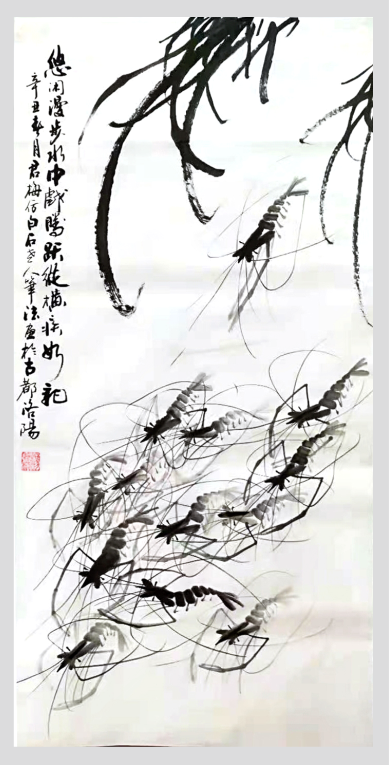 悠闲漫步水中戏腾跃纵横疾如飞
辛丑春月君梅仿白石老人笔法画于古都洛阳